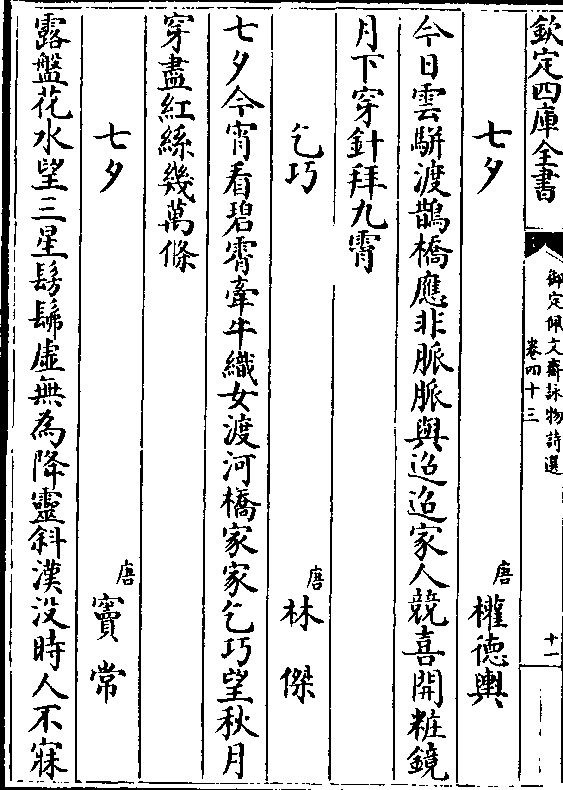 欽定四庫全書
御定佩文齋詠物詩選
卷四十三
十一
七夕 唐 權德輿
今日雲駢渡鵲橋應非脈脈與迢迢家人競喜開粧鏡
月下穿針拜九霄
乞巧 唐 林傑
七夕今宵看碧霄牽牛織女渡河橋家家乞巧望秋月
穿盡紅絲幾萬條
七夕 唐 竇常
露盤花水望三星髣髴虛無為降靈斜漢没時人不寐